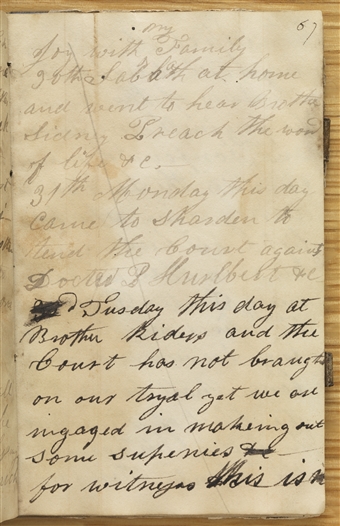 67
my
joy with Family
30th Sabath at home
and went to hear Brother
Sidney Preach the word
of life &c.—
31th Monday this day
Came to Sharden to
tend the Court against
Docter P Hurlbert &c
Tusday this day at
Brother Riders and the
Court has not braught
on our tryal yet we are
ingaged in makeing out
some supenies &c—
for witnesses this is